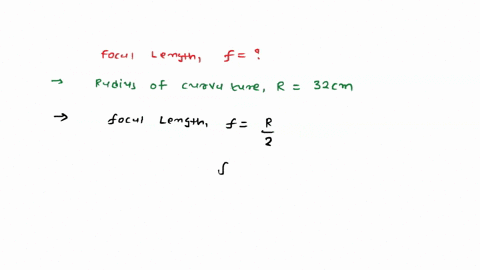 Focal Length, f = ?
→ Radius of curvature, R = 32cm
→ focal Length, f = R/2
f